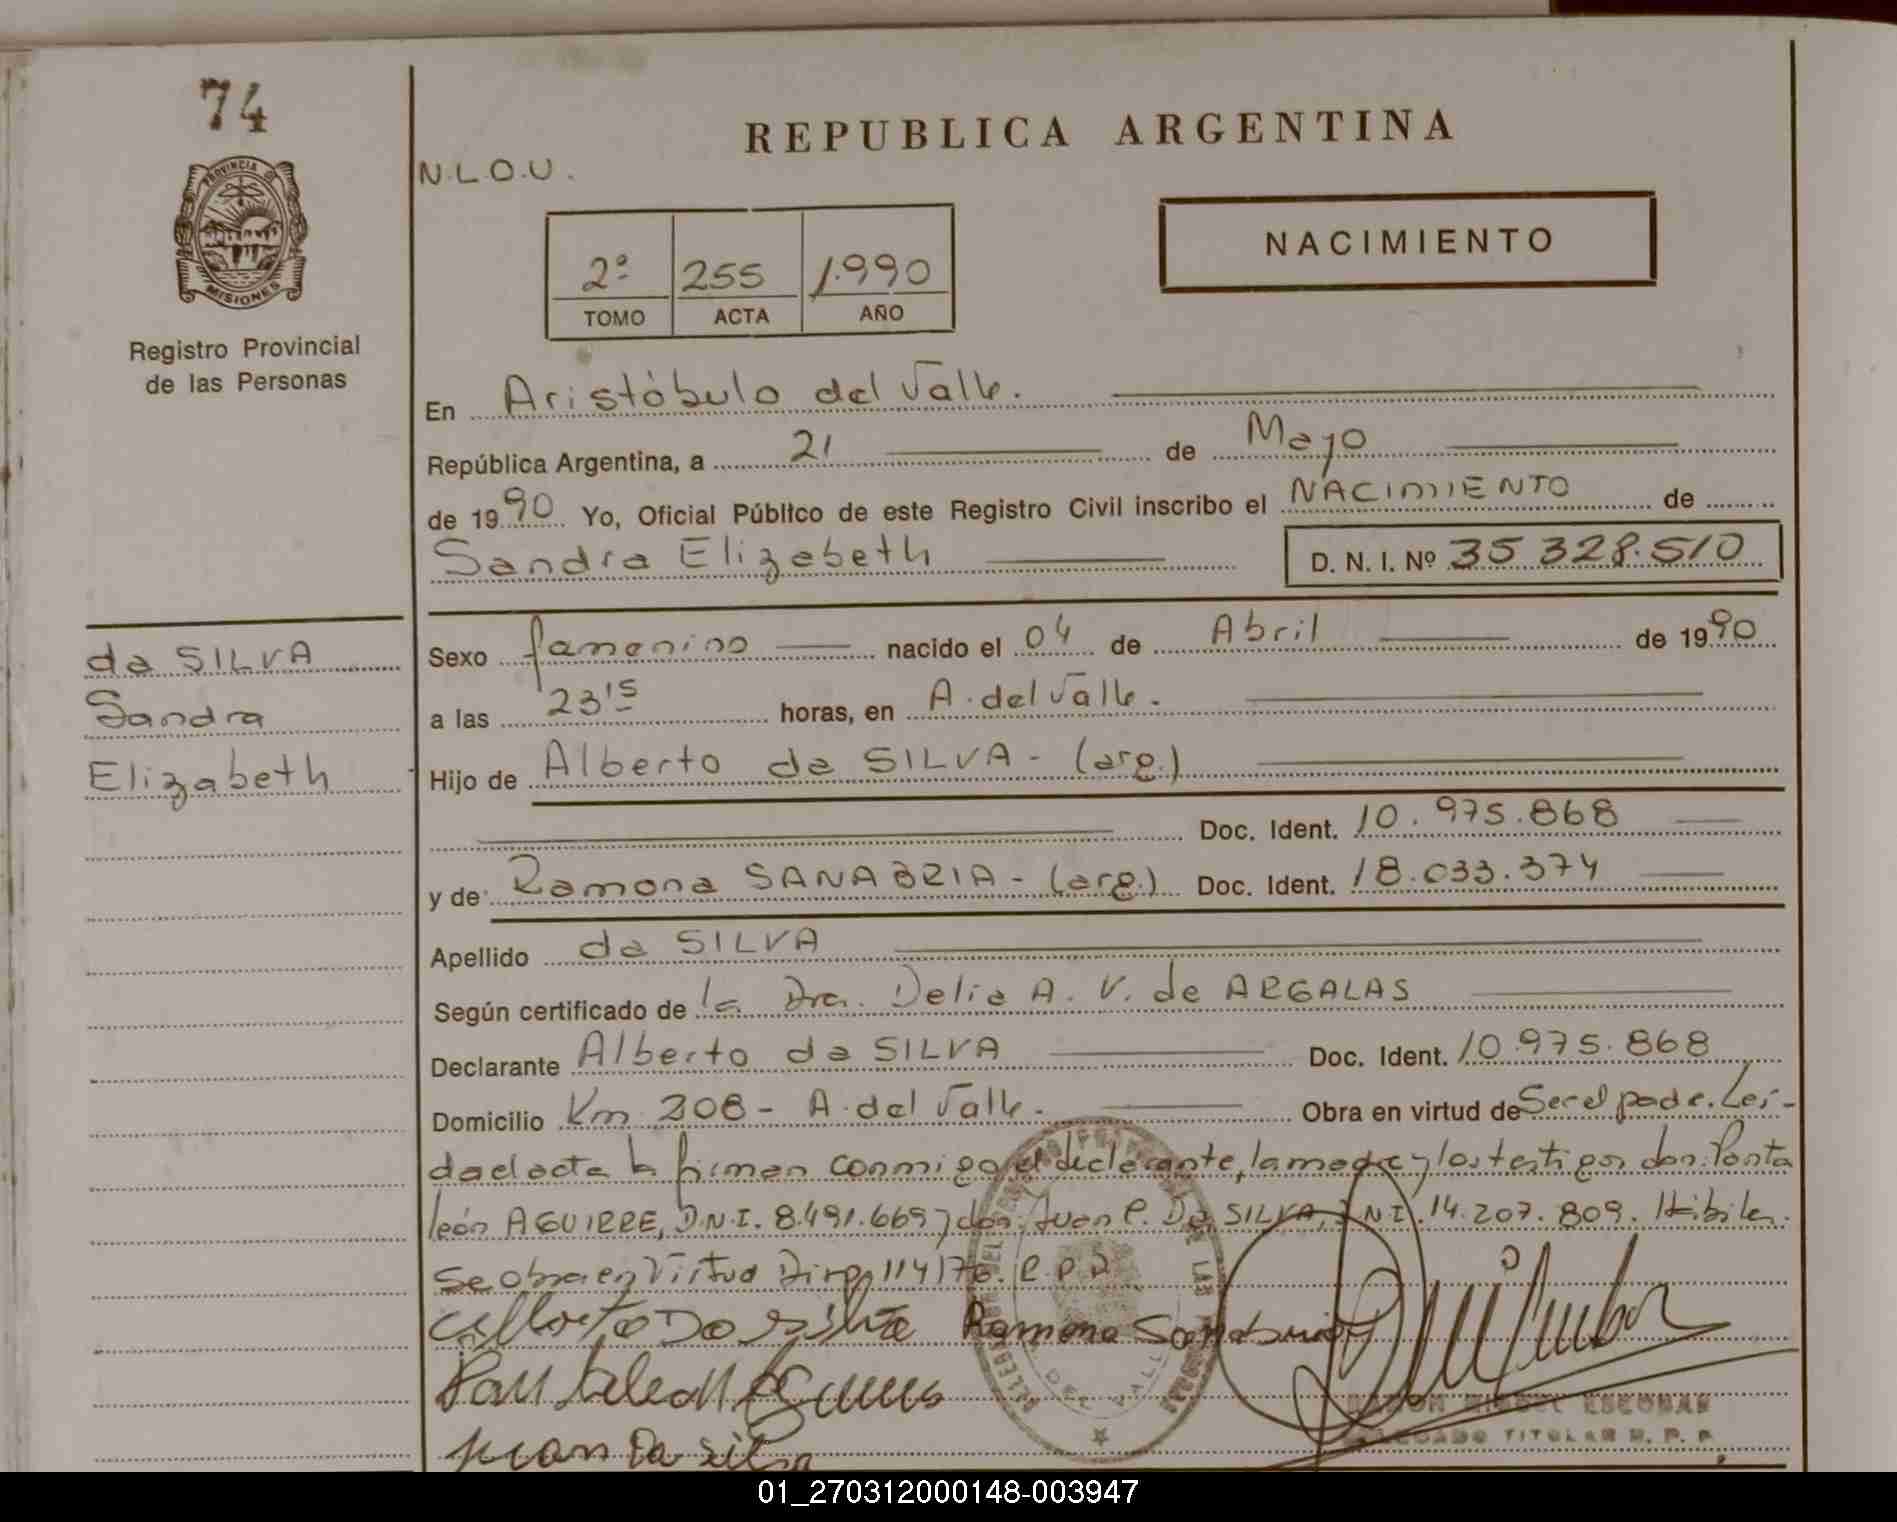 74
PROVINCIA DE
MISIONES
Registro Provincial
de las Personas
da SILVA
Sandra
Elizabeth
REPUBLICA ARGENTINA
N.L.O.U.
2º 255 1.990
TOMO ACTA AÑO
NACIMIENTO
En Aristóbulo del Valle.
República Argentina, a 21 de Mayo
de 1990 Yo, Oficial Público de este Registro Civil inscribo el NACIMIENTO de
Sandra Elizabeth D. N. I. Nº 35 328.510
Sexo femenino nacido el 04 de Abril de 1990
a las 23 15 horas, en A. del Valle.
Hijo de Alberto da SILVA - (arg.)
Doc. Ident. 10.975.868
y de Ramona SANABRIA - (arg.) Doc. Ident. 18.033.374
Apellido da SILVA
Según certificado de la Dra. Delia A. V. de ARGALAS
Declarante Alberto da SILVA Doc. Ident. 10.975.868
Domicilio Km 208 - A. del Valle. Obra en virtud de Ser el padre. Leí-
da el acta la firman conmigo el declarante, la madre y los testigos don: Ponta
león AGUIRRE, D.N.I. 8.491.669 y don: Juan C. DA SILVA, D.N.I. 14.207.809. Hábiles.
Se obra en Virtud Disp. 114/76.
Alberto Da Silva Ramona Sanabria
Pantaleon Aguirre
RAMON MIGUEL ESCOBAR
DELEGADO TITULAR R. P. P.
Juan Da Silva
01_270312000148-003947